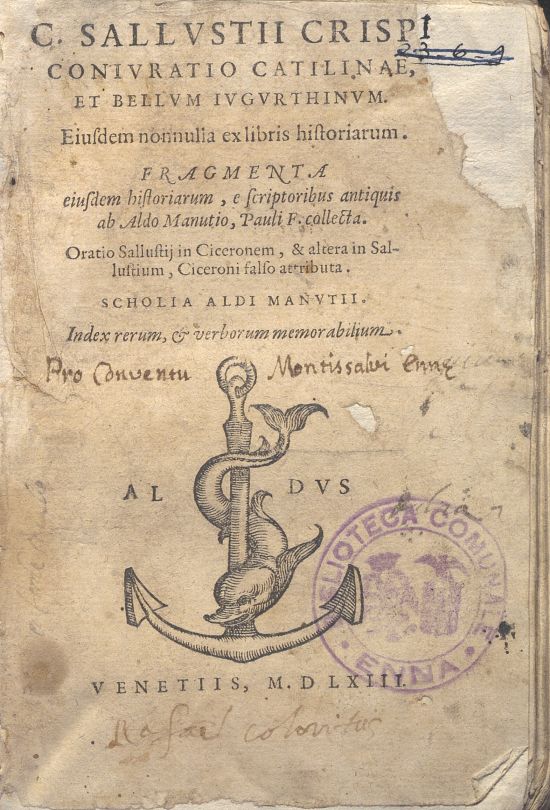 C. SALLVSTII CRISPI
23-6-9
CONIVRATIO CATILINAE,
ET BELLVM IVGVRTHINVM.
Eiuſdem nonnulla ex libris hiſtoriarum.
FRAGMENTA
eiuſdem hiſtoriarum, e ſcriptoribus antiquis
ab Aldo Manutio, Pauli F. collecta.
Oratio Salluſtij in Ciceronem, & altera in Sal-
luſtium, Ciceroni falſo attributa.
SCHOLIA ALDI MANVTII.
Index rerum, & verborum memorabilium.
Pro Conventu Montissalvi Ennę
AL DVS
BIBLIOTECA COMUNALE
ENNA
VENETIIS, M. D LXIII.
Rafael